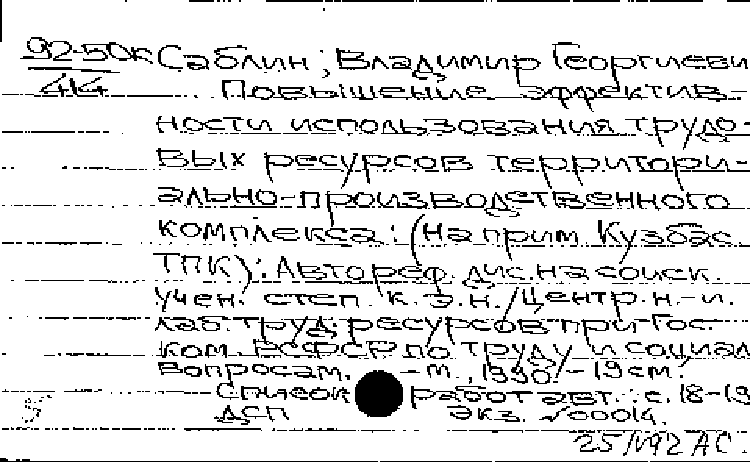 92-50к Саблин, Владимир Георгиеви
414 Повышение эффектив-
ности использования трудо-
вых ресурсов территори-
ально-производственного
комплекса: (На прим. Кузбас.
ТПК): Автореф. дис. на соиск.
учен. степ. к.э.н. / Центр. н.-и.
лаб. труд. ресурсов при Гос.
ком. РСФСР по труду и социал.
вопросам. - М., 1990. - 19 см.
Список работ авт.: с. 18-19
ДСП Экз. №00014.